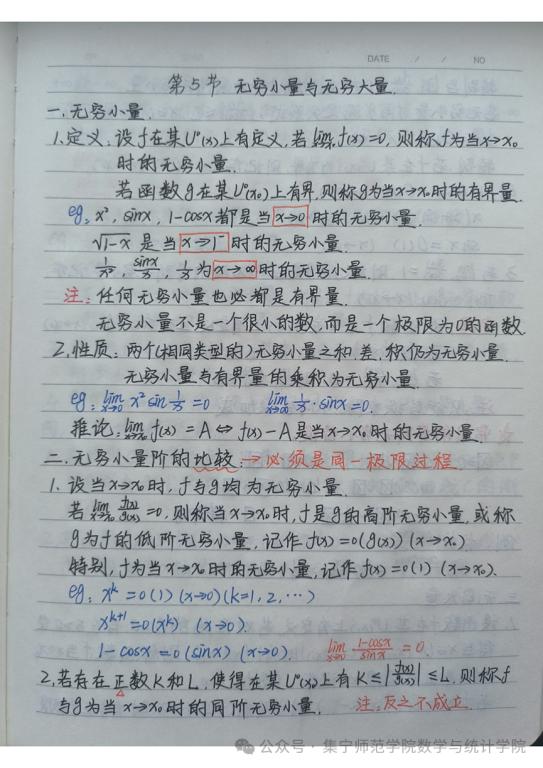 DATE / / NO
第5节 无穷小量与无穷大量.
一.无穷小量.
1.定义:设f在某U°(x₀)上有定义,若lim_{x→x₀}f(x)=0,则称f为当x→x₀
时的无穷小量.
若函数g在某U°(x₀)上有界,则称g为当x→x₀时的有界量.
eg: x², sinx, 1-cosx都是当x→0时的无穷小量.
√(1-x) 是当x→1⁻时的无穷小量.
1/x², sinx/x, 1/x为x→∞时的无穷小量.
注:任何无穷小量也必都是有界量.
无穷小量不是一个很小的数,而是一个极限为0的函数.
2.性质:两个(相同类型的)无穷小量之和、差、积仍为无穷小量.
无穷小量与有界量的乘积为无穷小量.
eg: lim_{x→0} x² sin 1/x = 0 lim_{x→∞} 1/x · sinx = 0.
推论: lim_{x→x₀} f(x) = A ⇔ f(x)-A是当x→x₀时的无穷小量.
二.无穷小量阶的比较:→必须是同一极限过程.
1. 设当x→x₀时, f与g均为无穷小量.
若lim_{x→x₀} f(x)/g(x) =0,则称当x→x₀时,f是g的高阶无穷小量,或称
g为f的低阶无穷小量,记作f(x)=o(g(x)) (x→x₀)
特别,f为当x→x₀时的无穷小量,记作f(x)=o(1) (x→x₀).
eg: xᵏ=o(1) (x→0)(k=1,2,⋯)
xᵏ⁺¹=o(xᵏ) (x→0).
1-cosx=o(sinx) (x→0). lim_{x→0} (1-cosx)/sinx = 0.
2.若存在正数K和L,使得在某U°(x₀)上有K≤|f(x)/g(x)|≤L,则称f
与g为当x→x₀时的同阶无穷小量. 注:反之不成立.
公众号 · 集宁师范学院数学与统计学院